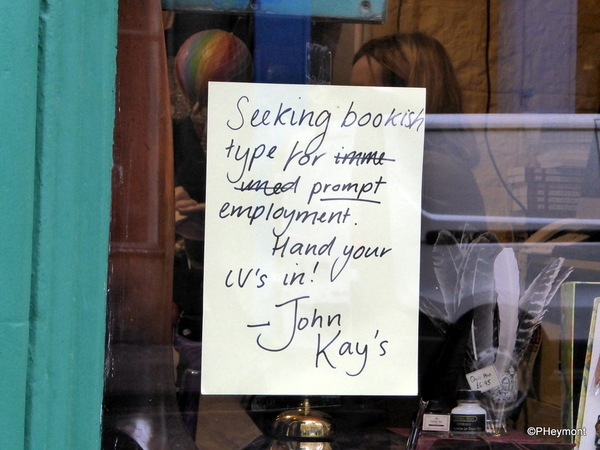 Seeking bookish
type for imme
umed prompt
employment.
Hand your
CV's in!
- John
Kay's
©PHeymont